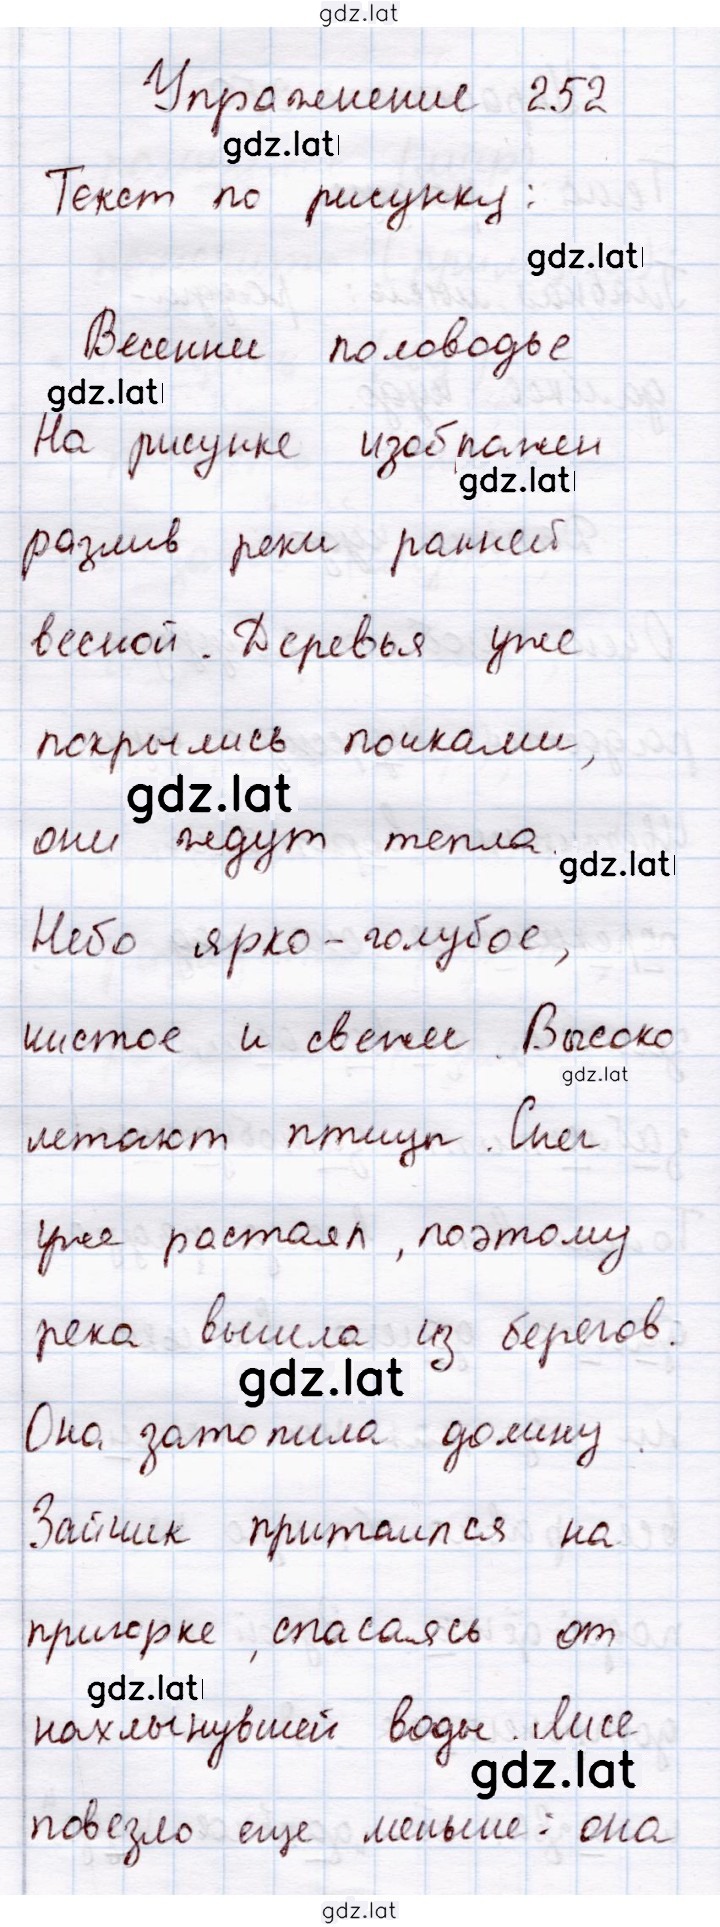 gdz.lat
Упражнение 252
gdz.lat
Текст по рисунку:
gdz.lat
Весеннее половодье
gdz.lat
На рисунке изображен
gdz.lat
разлив реки ранней
весной. Деревья уже
покрылись почками,
gdz.lat
они ждут тепла.
gdz.lat
Небо ярко-голубое,
чистое и свежее. Высоко
gdz.lat
летают птицы. Снег
уже растаял, поэтому
река вышла из берегов.
gdz.lat
Она затопила долину.
Зайчик притаился на
пригорке, спасаясь от
gdz.lat
нахлынувшей воды. Лисе
gdz.lat
повезло еще меньше: она
gdz.lat